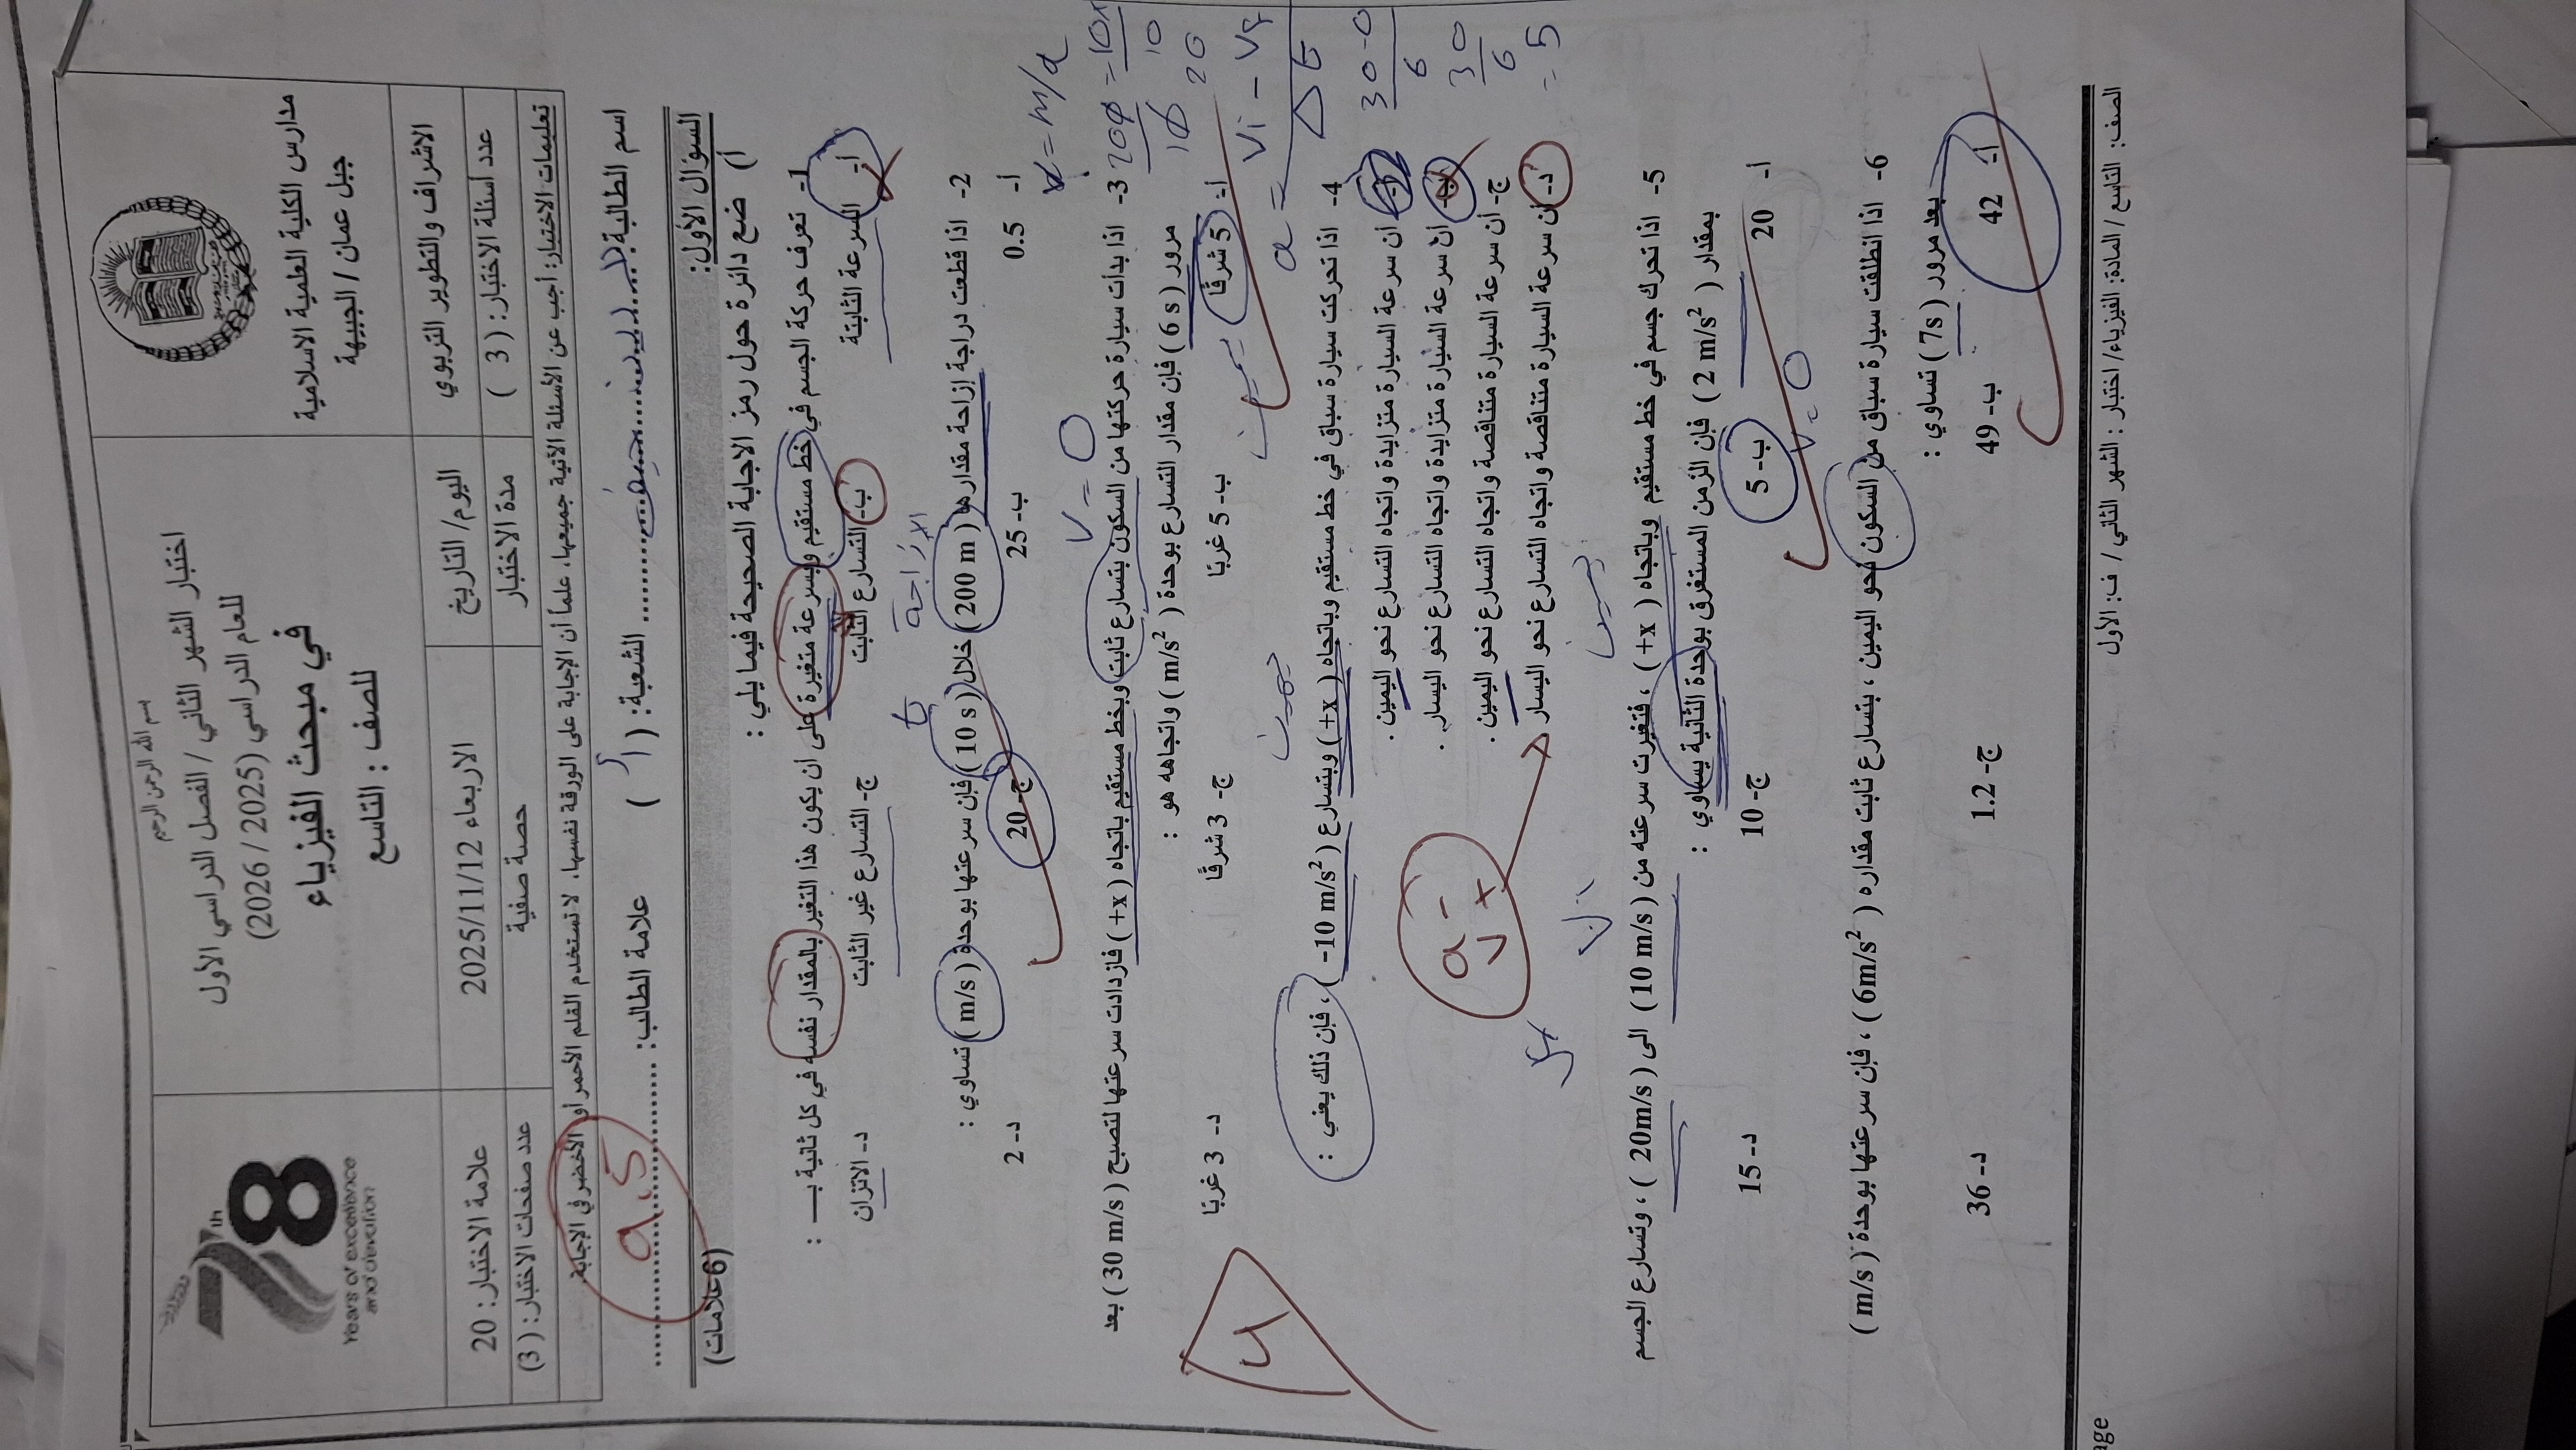 بسم الله الرحمن الرحيم
مدارس الكلية العلمية الاسلامية
جبل عمان / الجبيهة
اختبار الشهر الثاني / الفصل الدراسي الأول
للعام الدراسي (2025 / 2026)
في مبحث الفيزياء
للصف : التاسع
78th
Years of excellence
and devotion
الاشراف والتطوير التربوي
اليوم/ التاريخ
الاربعاء 2025/11/12
علامة الاختبار: 20
عدد أسئلة الاختبار: ( 3 )
مدة الاختبار
حصة صفية
عدد صفحات الاختبار: ( 3)
تعليمات الاختبار: أجب عن الأسئلة الآتية جميعها، علماً أن الإجابة على الورقة نفسها، لا تستخدم القلم الأحمر أو الأخضر في الإجابة.
اسم الطالب: الشعبة: ( أ ) علامة الطالب: 9.5
السؤال الأول: (6علامات)
أ) ضع دائرة حول رمز الاجابة الصحيحة فيما يلي :
1- تعرف حركة الجسم في خط مستقيم وبسرعة متغيرة على أن يكون هذا التغير بالمقدار نفسه في كل ثانية بـ :
أ- السرعة الثابتة ب- التسارع الثابت ج- التسارع غير الثابت د- الاتزان
الإزاحة
t
2- اذا قطعت دراجة إزاحة مقدارها ( 200 m ) خلال ( 10 s ) فإن سرعتها بوحدة ( m/s ) تساوي :
أ- 0.5 ب- 25 ج- 20 د- 2
v = m/d
v = 0
3- اذا بدأت سيارة حركتها من السكون بتسارع ثابت وبخط مستقيم باتجاه ( +x ) فازدادت سرعتها لتصبح ( 30 m/s ) بعد
مرور ( 6 s ) فإن مقدار التسارع بوحدة ( m/s² ) واتجاهه هو :
أ- 5 شرقًا ب- 5 غربًا ج- 3 شرقًا د- 3 غربًا
يمين
a = Vi - Vf
Δt
30-0
6
30
6
= 5
يمين
4- اذا تحركت سيارة سباق في خط مستقيم وباتجاه ( +x ) وبتسارع ( -10 m/s² ) ، فإن ذلك يعني :
أ- ان سرعة السيارة متزايدة واتجاه التسارع نحو اليمين .
ب- ان سرعة السيارة متزايدة واتجاه التسارع نحو اليسار .
ج- ان سرعة السيارة متناقصة واتجاه التسارع نحو اليمين .
د- ان سرعة السيارة متناقصة واتجاه التسارع نحو اليسار
a -
v +
4
Vi
5- اذا تحرك جسم في خط مستقيم وباتجاه ( +x ) ، فتغيرت سرعته من ( 10 m/s ) الى ( 20m/s ) ، وتسارع الجسم
بمقدار ( 2 m/s² ) فإن الزمن المستغرق بوحدة الثانية يساوي :
أ- 20 ب- 5 ج- 10 د- 15
v = 0
6- اذا انطلقت سيارة سباق من السكون نحو اليمين ، بتسارع ثابت مقداره ( 6m/s² ) ، فإن سرعتها بوحدة ( m/s )
بعد مرور ( 7s ) تساوي :
أ- 42 ب- 49 ج- 1.2 د- 36
الصف: التاسع / المادة: الفيزياء/ اختبار : الشهر الثاني / ف: الأول
age